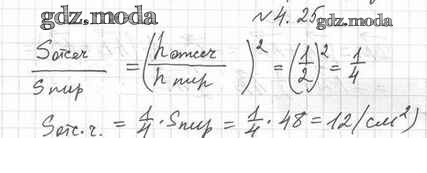 gdz.moda
№ 4.25
gdz.moda
Sотсеч / Sпир = (hотсеч / hпир)² = (1/2)² = 1/4
Sотс.ч. = 1/4 · Sпир = 1/4 · 48 = 12 (см²)